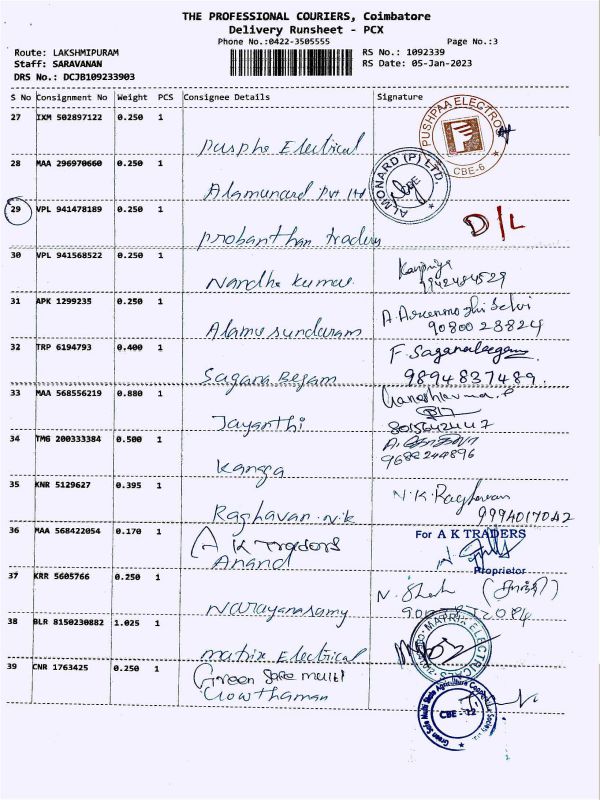 THE PROFESSIONAL COURIERS, Coimbatore
Delivery Runsheet - PCX
Phone No.:0422-3505555 Page No.:3
Route: LAKSHMIPURAM RS No.: 1092339
Staff: SARAVANAN RS Date: 05-Jan-2023
DRS No.: DCJB109233903
S No Consignment No Weight PCS Consignee Details Signature
27 IXM 502897122 0.250 1
Puspha Electrical
PUSHPAA ELECTRO CBE-6
28 MAA 296970660 0.250 1
Alamunard Pvt ltd
ALMONARD (P) LTD. CBE
29 VPL 941478189 0.250 1
Prabanthan traders D/L
30 VPL 941568522 0.250 1
Nandha kumar
31 APK 1299235 0.250 1
Alamu sundaram
9080023824
32 TRP 6194793 0.400 1
Sagana Begam 9894837489.
33 MAA 568556219 0.880 1
Jayanthi 8015642447
34 TMG 200333384 0.500 1
Kanga 9688244896
35 KNR 5129627 0.395 1
N.K.Raghavan
Raghavan.N.K 9994017042
36 MAA 568422054 0.170 1
A K Traders For A K TRADERS
Anand
Proprietor
37 KRR 5605766 0.250 1
Narayanasamy
38 BLR 8150230882 1.025 1
Matrix Electrical
MATRIX ELECTRICALS
39 CNR 1763425 0.250 1
Green Safe multi
Gowthaman
Green Safe Multi State Agriculture Cooperative Society
CBE - 12